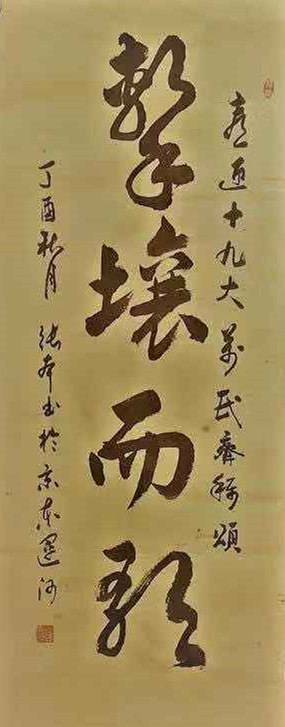 喜迎十九大萬民齊稱頌
擊壤而歌
丁酉秋月張本書於京東運河